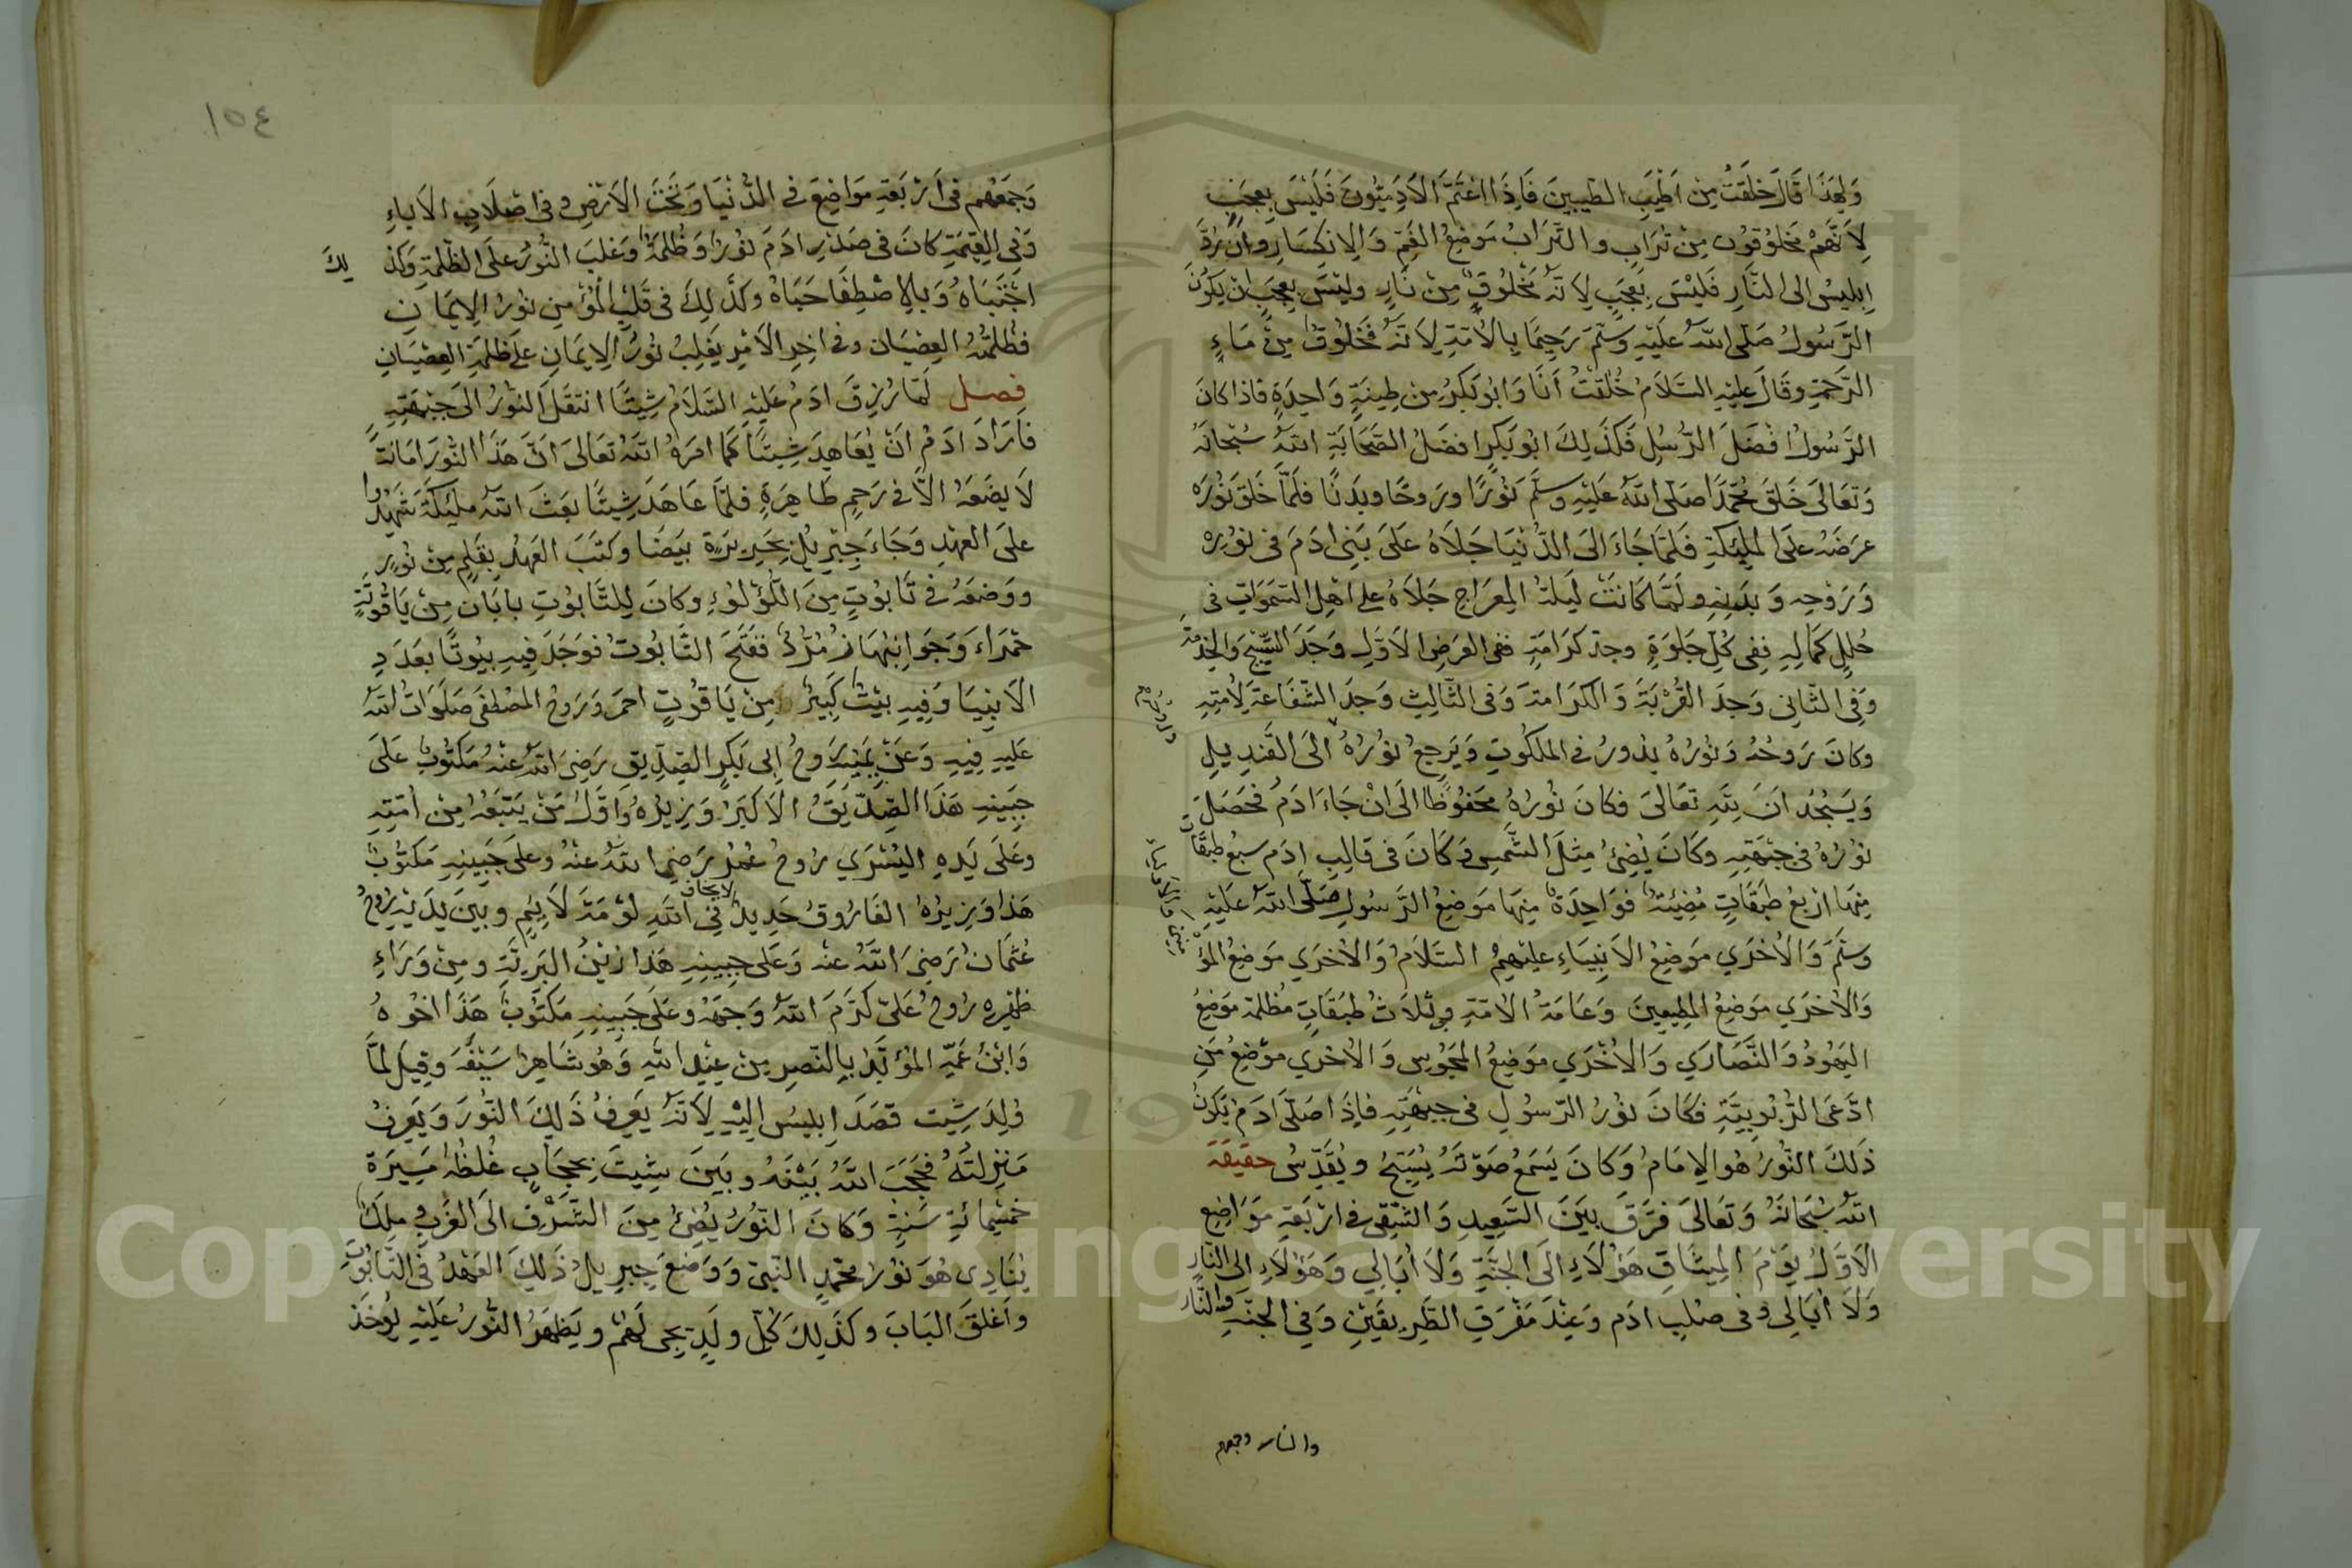 ولهذا قال خلقت من اطيب الطيبين فاذا اغتم الادميون فليس بعجب
لانهم مخلوقون من تراب والتراب موضع الغم والانكسار وان رد
ابليس الى النار فليس بعجب لانه مخلوق من نار وليس بعجب ان يكون
الرسول صلى الله عليه وسلم رحيما بالامة لانه مخلوق من ماء
الرحمة وقال عليه السلام خلقت انا وابو بكر من طينة واحدة فاذا كان
الرسول افضل الرسل فكذلك ابو بكر افضل الصحابة الله سبحانه
وتعالى خلق محمدا صلى الله عليه وسلم نورا وروحا وبدنا فلما خلق نوره
عرضه على الملئكة فلما جاء الى الدنيا جلاه على بنى ادم فى نوره
وروحه وبدنه ولما كانت ليلة المعراج جلاه على اهل السموات فى
حلل كماله ففى كل جلوة وجد كرامة ففى العرض الاول وجد التسبيح والخدمة
وفى الثانى وجد القربة والكرامة وفى الثالث وجد الشفاعة لامته
وكان روحه ونوره يدور فى الملكوت ويرجع نوره الى القنديل
ويسجد ان لله تعالى فكان نوره محفوظا الى ان جاء ادم فحصل
نوره فى جبهته وكان يضئ مثل الشمس وكان فى قالب ادم سبع طبقات
منها اربع طبقات مضيئة فواحدة منها موضع الرسول صلى الله عليه
وسلم والاخرى موضع الانبياء عليهم السلام والاخرى موضع المؤ
والاخرى موضع المطيعين وعامة الامة وثلاث طبقات مظلمة موضع
اليهود والنصارى والاخرى موضع المجوس والاخرى موضع من
ادعى الربوبية فكان نور الرسول فى جبهته فاذا صلى ادم يكون
ذلك النور هو الامام وكان يسمع صوته يسبح ويقدس حقيقة
الله سبحانه وتعالى فرق بين السعيد والشقى فى اربعة مواضع
الاول يوم الميثاق هؤلاء الى الجنة ولا أبالي وهؤلاء الى النار
ولا أبالى وفى صلب ادم وعند مفرق الطريقين وفى الجنة والنار
والنار وجمعهم
١٥٤
وجمعهم فى اربعة مواضع فى الدنيا وتحت الارض وفى اصلاب الاباء
وفى القيمة كان فى صدر ادم نور وظلمة وغلب النور على الظلمة وكذ لك
اجتباه وبالاصطفا حباه وكذلك فى قلب المؤمن نور الايمان
فظلمة العصيان وفى اخر الامر يغلب نور الايمان على ظلمة العصيان
فصل لما رزق ادم عليه السلام شيثا انتقل النور الى جبهته
فاراد ادم ان يعاهد شيثا كما امره الله تعالى ان هذا النور امانة
لا يضعه الا فى رحم طاهرة فلما عاهد شيثا بعث الله ملئكة شهدوا
على العهد وجاء جبريل بحريرة بيضا وكتب العهد بقلم من نور
ووضعه فى تابوت من اللؤلؤ وكان للتابوت بابان من ياقوتة
حمراء وجوانبها زمرد ففتح التابوت فوجد فيه بيوتا بعدد
الانبيا وفيه بيت كبير من ياقوت احمر وروح المصطفى صلوات الله
عليه فيه وعن يمينه روح ابى بكر الصديق رضى الله عنه مكتوب على
جبينه هذا الصديق الاكبر وزيره واول من يتبعه من امته
وعلى يده اليسرى روح عمر رضى الله عنه وعلى جبينه مكتوب
هذا وزيره الفاروق حديد لا يخاف فى الله لومة لائم وبين يديه روح
عثمان رضى الله عنه وعلى جبينه هذا زين البرية ومن وراء
ظهره روح على كرم الله وجهه وعلى جبينه مكتوب هذا اخوه
وابن عمه المؤيد بالنصر من عند الله وهو شاهر سيفه وقيل لما
ولد شيث قصد ابليس اليه لانه يعرف ذلك النور ويعرف
منزلته فحجب الله بينه وبين شيث بحجاب غلظه مسيرة
خمسمائة سنة وكان النور يضئ من الشرق الى الغرب ملك
ينادى هو نور محمد النبى ووضع جبريل ذلك العهد فى التابوت
واغلق الباب وكذلك كل ولد يجى لهم ويظهر النور عليه يوخذ
Copyright © King Saud University